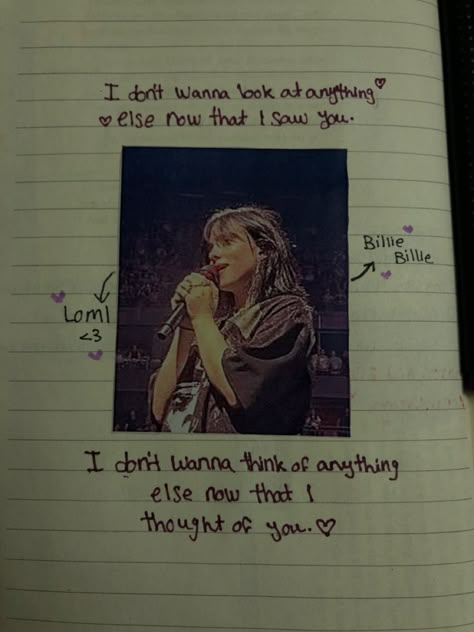 I don't wanna look at anything
else now that I saw you.
Billie
Billie
Loml
<3
I don't wanna think of anything
else now that I
thought of you.